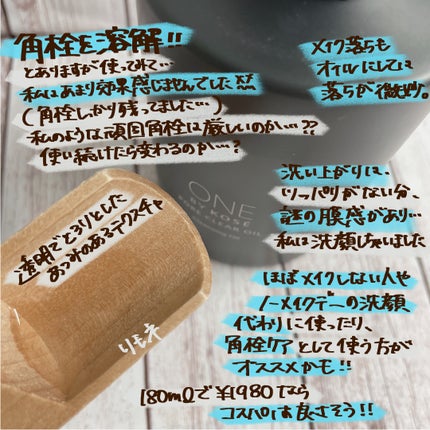 角栓を溶解!!
とありますが使ってみて…
私はあまり効果感じませんでした
(角栓しっかり残ってました…)
私のような頑固角栓は厳しいのか…??
使い続けたら変わるのか…?
メイク落ちも
オイルにしては
落ちが微妙。
洗い上がりは、
つっぱりがない分、
謎の膜感があり…
私は洗顔しちゃいました
透明でとろりとした
あつみのあるテクスチャ
ONE
BY KOSÉ
PORE CLEAR OIL
りもネ
ほぼメイクしない人や
ノーメイクデーの洗顔
代わりに使ったり、
角栓ケアとして使う方が
オススメかも!!
180mlで¥1980なら
コスパは良さそう!!